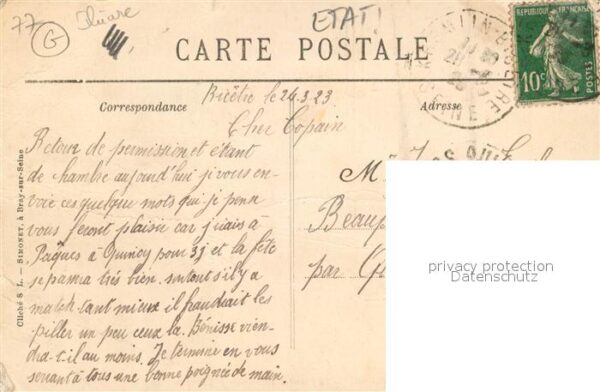 77
G
ETAT!
CARTE POSTALE
REPUBLIQUE FRANÇAISE
10c
POSTES
Correspondance
Adresse
Bicêtre le 24.3.23
Cher Copain
Retour de permission et étant
de chambre aujourd'hui je vous en-
voie ces quelque mots qui je pense
vous feront plaisir car j'irais à
Pâques à Quincy pour 3j et la fête
se passera très bien surtout s'il y a
match tant mieux il faudrait les
piller un peu ceux la. Bénisse vien-
dra-t-il au moins. Je termine en vous
serrant à tous une bonne poignée de main.
M
Beaup
par
Cliché S. L. — SIMONET, à Bray-sur-Seine
privacy protection
Datenschutz